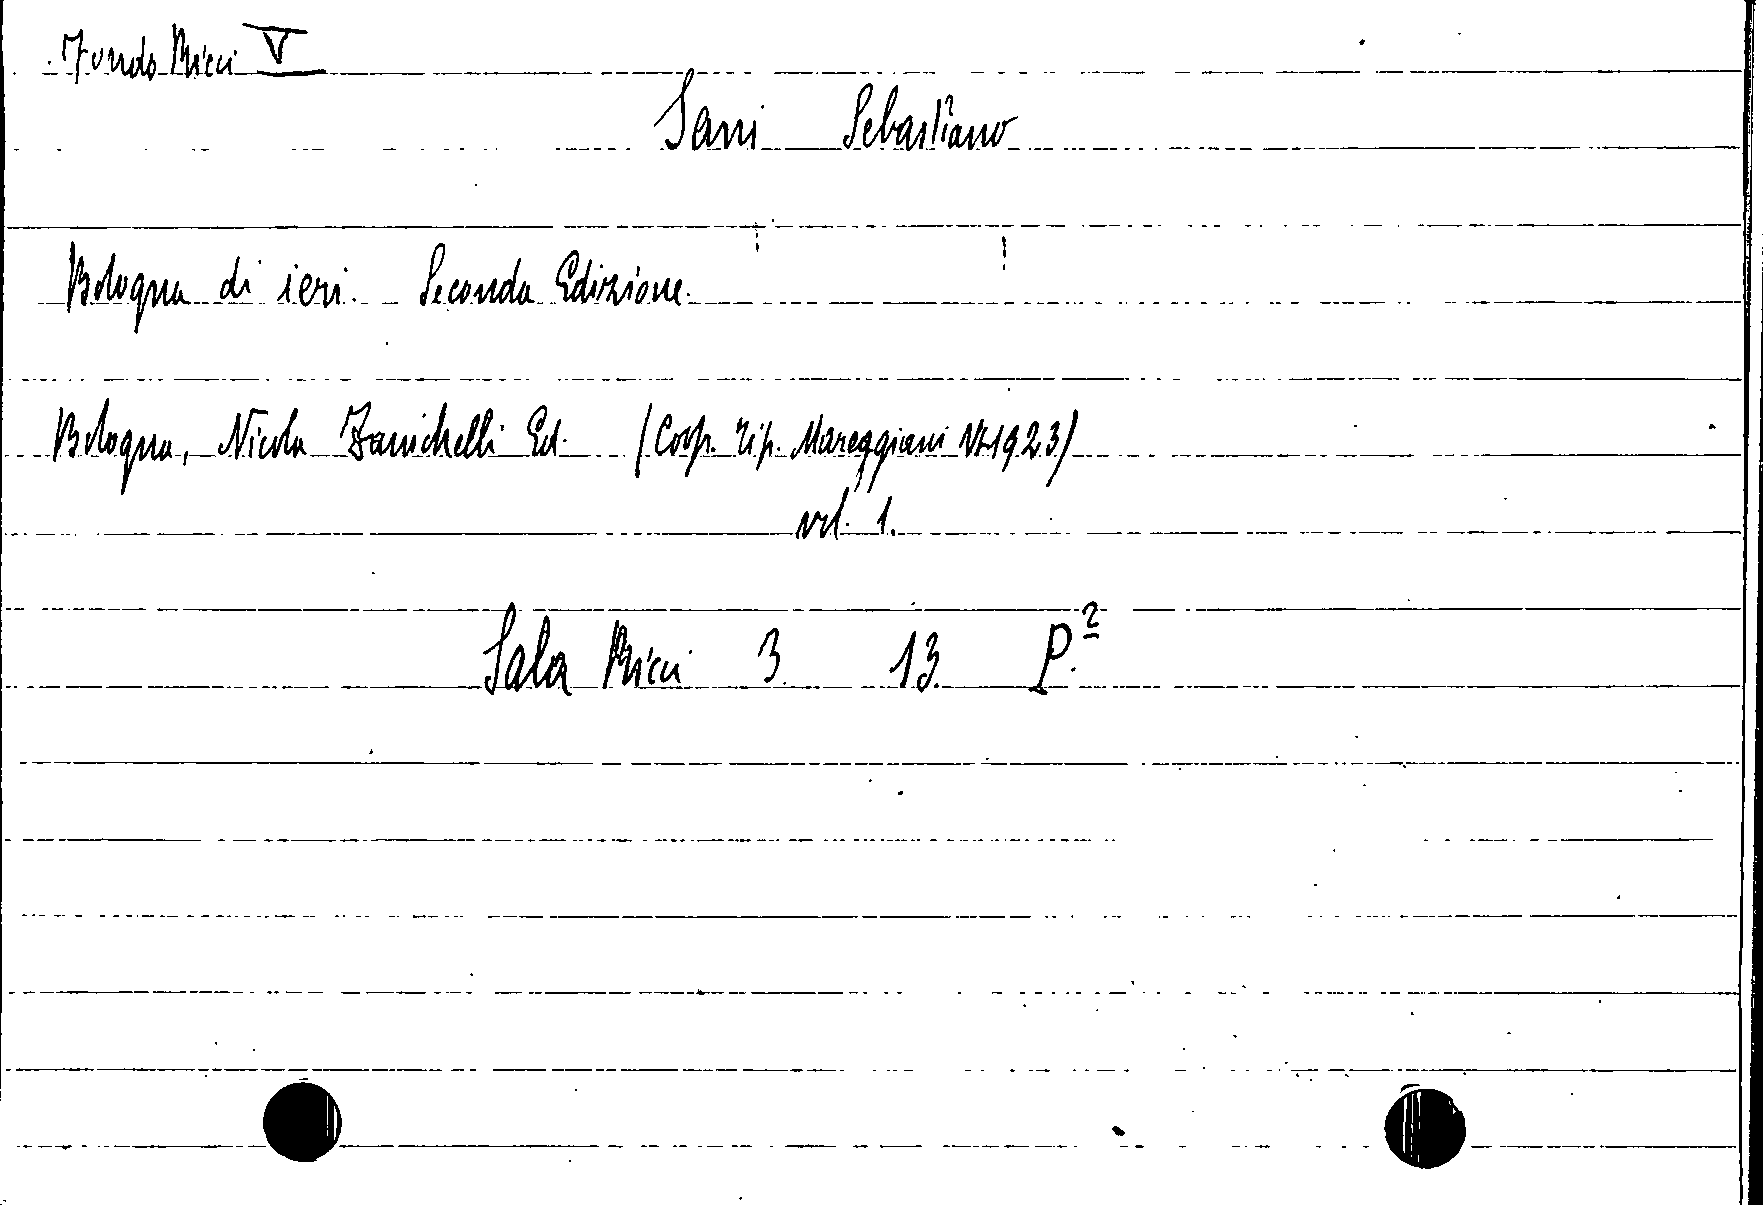 Fondo Ricci V
Sani Sebastiano
Bologna di ieri. Seconda Edizione.
Bologna, Nicola Zanichelli Ed. (Coop. Tip. Mareggiani VI-1923)
vol. 1.
Sala Ricci 3. 13. P.2